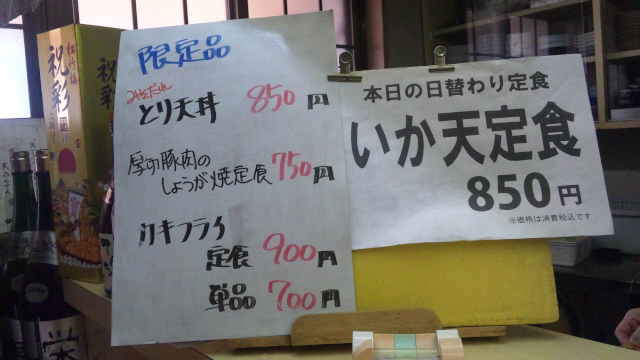 限定品
みそだれ
とり天丼 850円
厚切豚肉の
しょうが焼定食 750円
カキフライ
定食 900円
単品 700円
本日の日替わり定食
いか天定食
850円
※価格は消費税込です
祝彩
松竹梅
栄